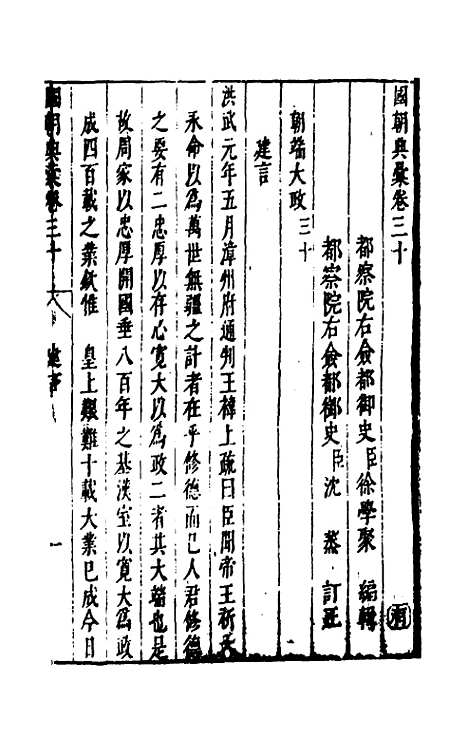 國朝典彙卷三十
都察院右僉都御史臣徐學聚 編輯
都察院右僉都御史臣沈 蒸 訂正
朝端大政三十
建言
洪武元年五月漳州府通判王褘上疏曰臣聞帝王祈天
永命以為萬世無疆之計者在乎修德而已人君修德
之要有二忠厚以存心寬大以為政二者其大端也是
故周家以忠厚開國垂八百年之基漢室以寬大為政
成四百載之業欽惟 皇上艱難十載大業已成今日
國朝典彙卷三十 建言 一